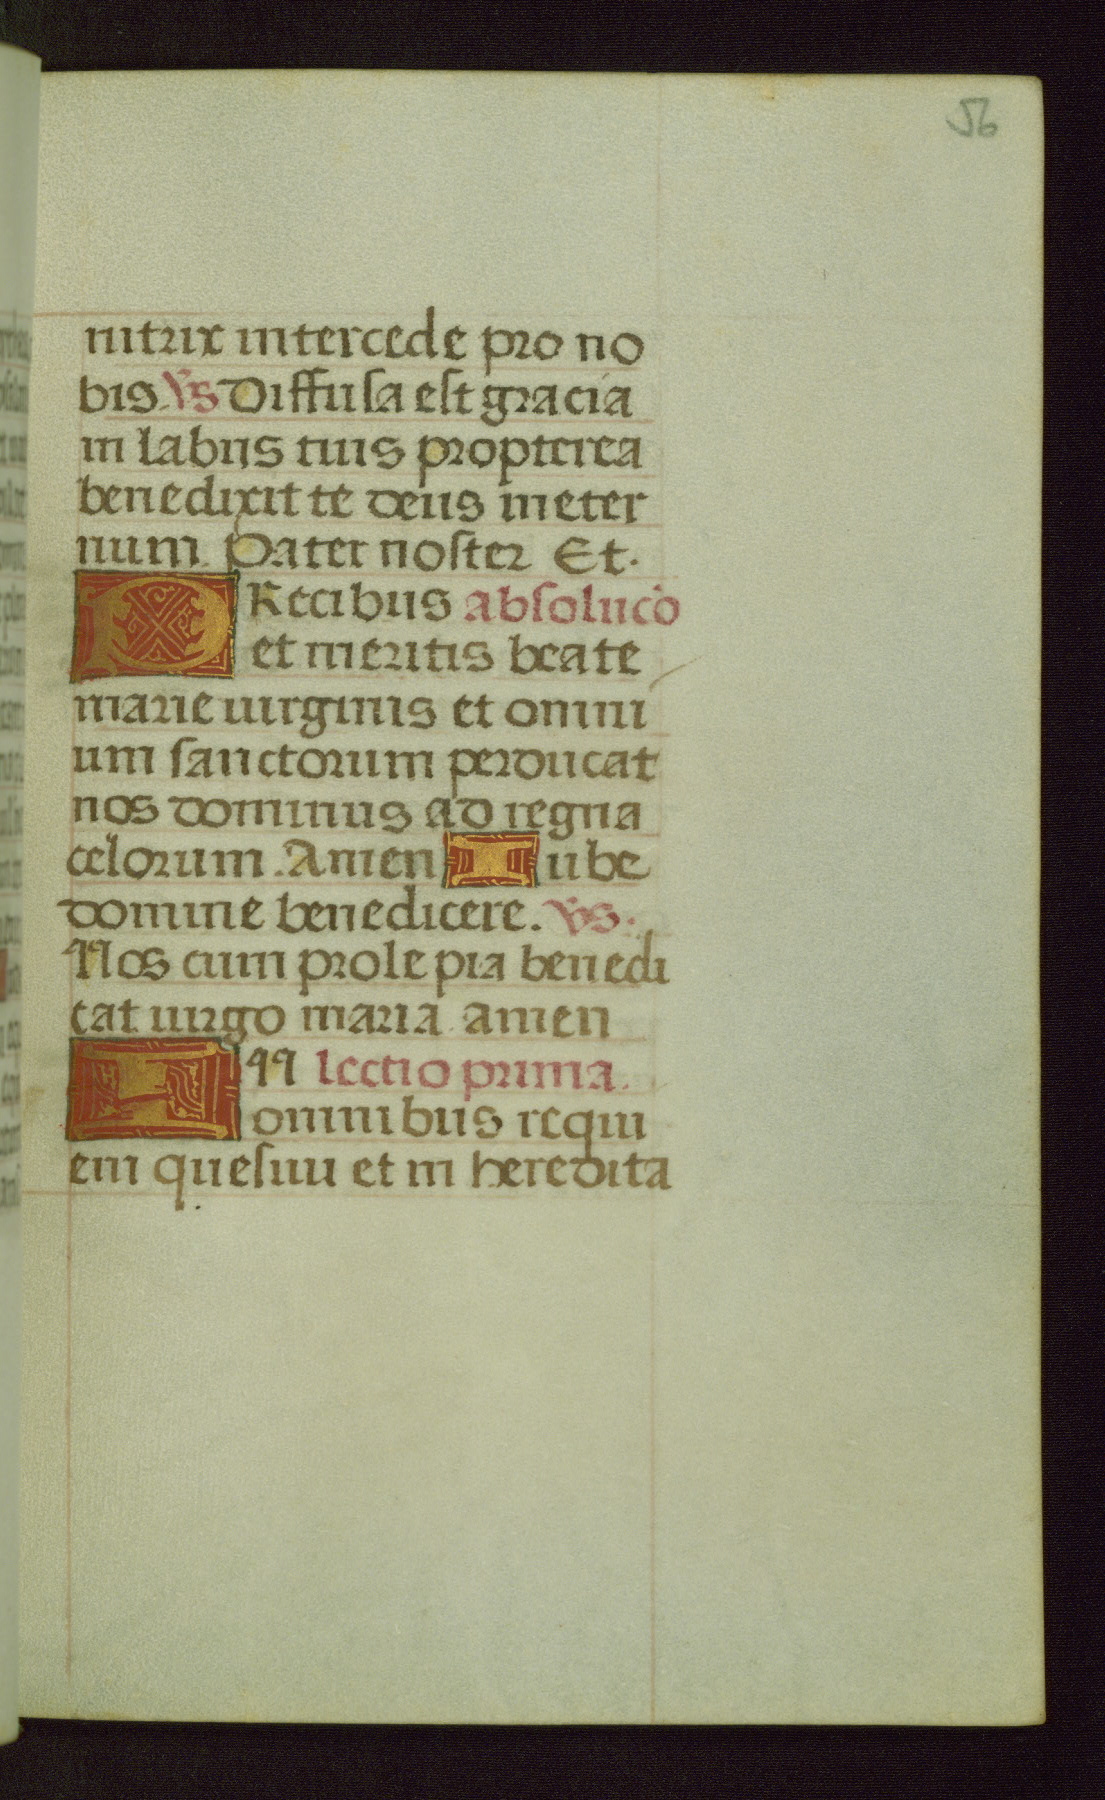 56
nitrix intercede pro no
bis. V̄s Diffusa est gracia
in labijs tuis propterea
benedixit te deus in eter
num. Pater noster Et.
PRecibus absoluc̄o
et meritis beate
marie uirginis et omni
um sanctorum perducat
nos dominus ad regna
celorum. Amen Iube
domine benedicere. V̄s.
Nos cum prole pia benedi
cat uirgo maria. amen
IN lectio prima.
omnibus requi
em quesiui et in heredita